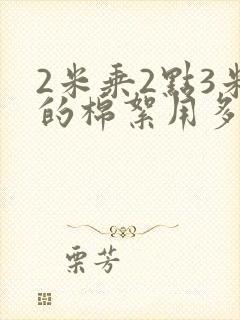 2米乘2點3米
的棉絮用多
栗芳